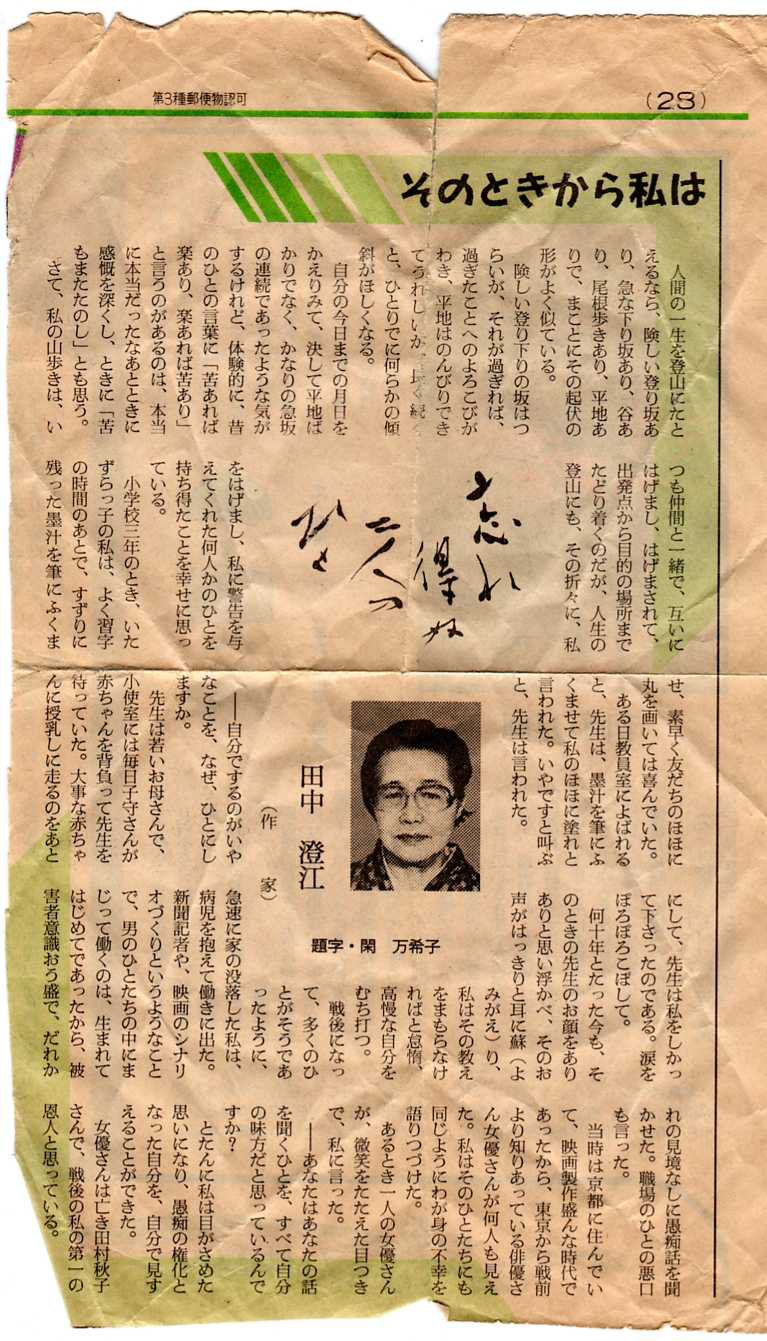 第3種郵便物認可
(28)
そのときから私は
人間の一生を登山にたと
えるなら、険しい登り坂あ
り、急な下り坂あり、谷あ
り、尾根歩きあり、平地あ
りで、まことにその起伏の
形がよく似ている。
険しい登り下りの坂はつ
らいが、それが過ぎれば、
過ぎたことへのよろこびが
わき、平地はのんびりでき
てうれしいが、長く続く
と、ひとりでに何らかの傾
斜がほしくなる。
自分の今日までの月日を
かえりみて、決して平地ば
かりでなく、かなりの急坂
の連続であったような気が
するけれど、体験的に、昔
のひとの言葉に「苦あれば
楽あり、楽あれば苦あり」
と言うのがあるのは、本当
に本当だったなあとときに
感慨を深くし、ときに「苦
もまたたのし」とも思う。
さて、私の山歩きは、い
つも仲間と一緒で、互いに
はげまし、はげまされて、
出発点から目的の場所まで
たどり着くのだが、人生の
登山にも、その折々に、私
忘れ
得ぬ
二人の
ひと
をはげまし、私に警告を与
えてくれた何人かのひとを
持ち得たことを幸せに思っ
ている。
小学校三年のとき、いた
ずらっ子の私は、よく習字
の時間のあとで、すずりに
残った墨汁を筆にふくま
せ、素早く友だちのほほに
丸を画いては喜んでいた。
ある日教員室によばれる
と、先生は、墨汁を筆にふ
くませて私のほほに塗れと
言われた。いやですと叫ぶ
と、先生は言われた。
田中 澄江
(作 家)
――自分でするのがいや
なことを、なぜ、ひとにし
ますか。
先生は若いお母さんで、
小使室には毎日子守さんが
赤ちゃんを背負って先生を
待っていた。大事な赤ちゃ
んに授乳しに走るのをあと
にして、先生は私をしかっ
て下さったのである。涙を
ぼろぼろこぼして。
何十年とたった今も、そ
のときの先生のお顔をあり
ありと思い浮かべ、そのお
声がはっきりと耳に蘇(よ
みがえ)り、
私はその教え
をまもらなけ
ればと怠惰、
高慢な自分を
むち打つ。
戦後になっ
て、多くのひ
とがそうであ
ったように、
題字・閑 万希子
急速に家の没落した私は、
病児を抱えて働きに出た。
新聞記者や、映画のシナリ
オづくりというようなこと
で、男のひとたちの中にま
じって働くのは、生まれて
はじめてであったから、被
害者意識おう盛で、だれか
れの見境なしに愚痴話を聞
かせた。職場のひとの悪口
も言った。
当時は京都に住んでい
て、映画製作盛んな時代で
あったから、東京から戦前
より知りあっている俳優さ
ん女優さんが何人も見え
た。私はそのひとたちにも
同じようにわが身の不幸を
語りつづけた。
あるとき一人の女優さん
が、微笑をたたえた目つき
で、私に言った。
――あなたはあなたの話
を聞くひとを、すべて自分
の味方だと思っているんで
すか?
とたんに私は目がさめた
思いになり、愚痴の権化と
なった自分を、自分で見す
えることができた。
女優さんは亡き田村秋子
さんで、戦後の私の第一の
恩人と思っている。